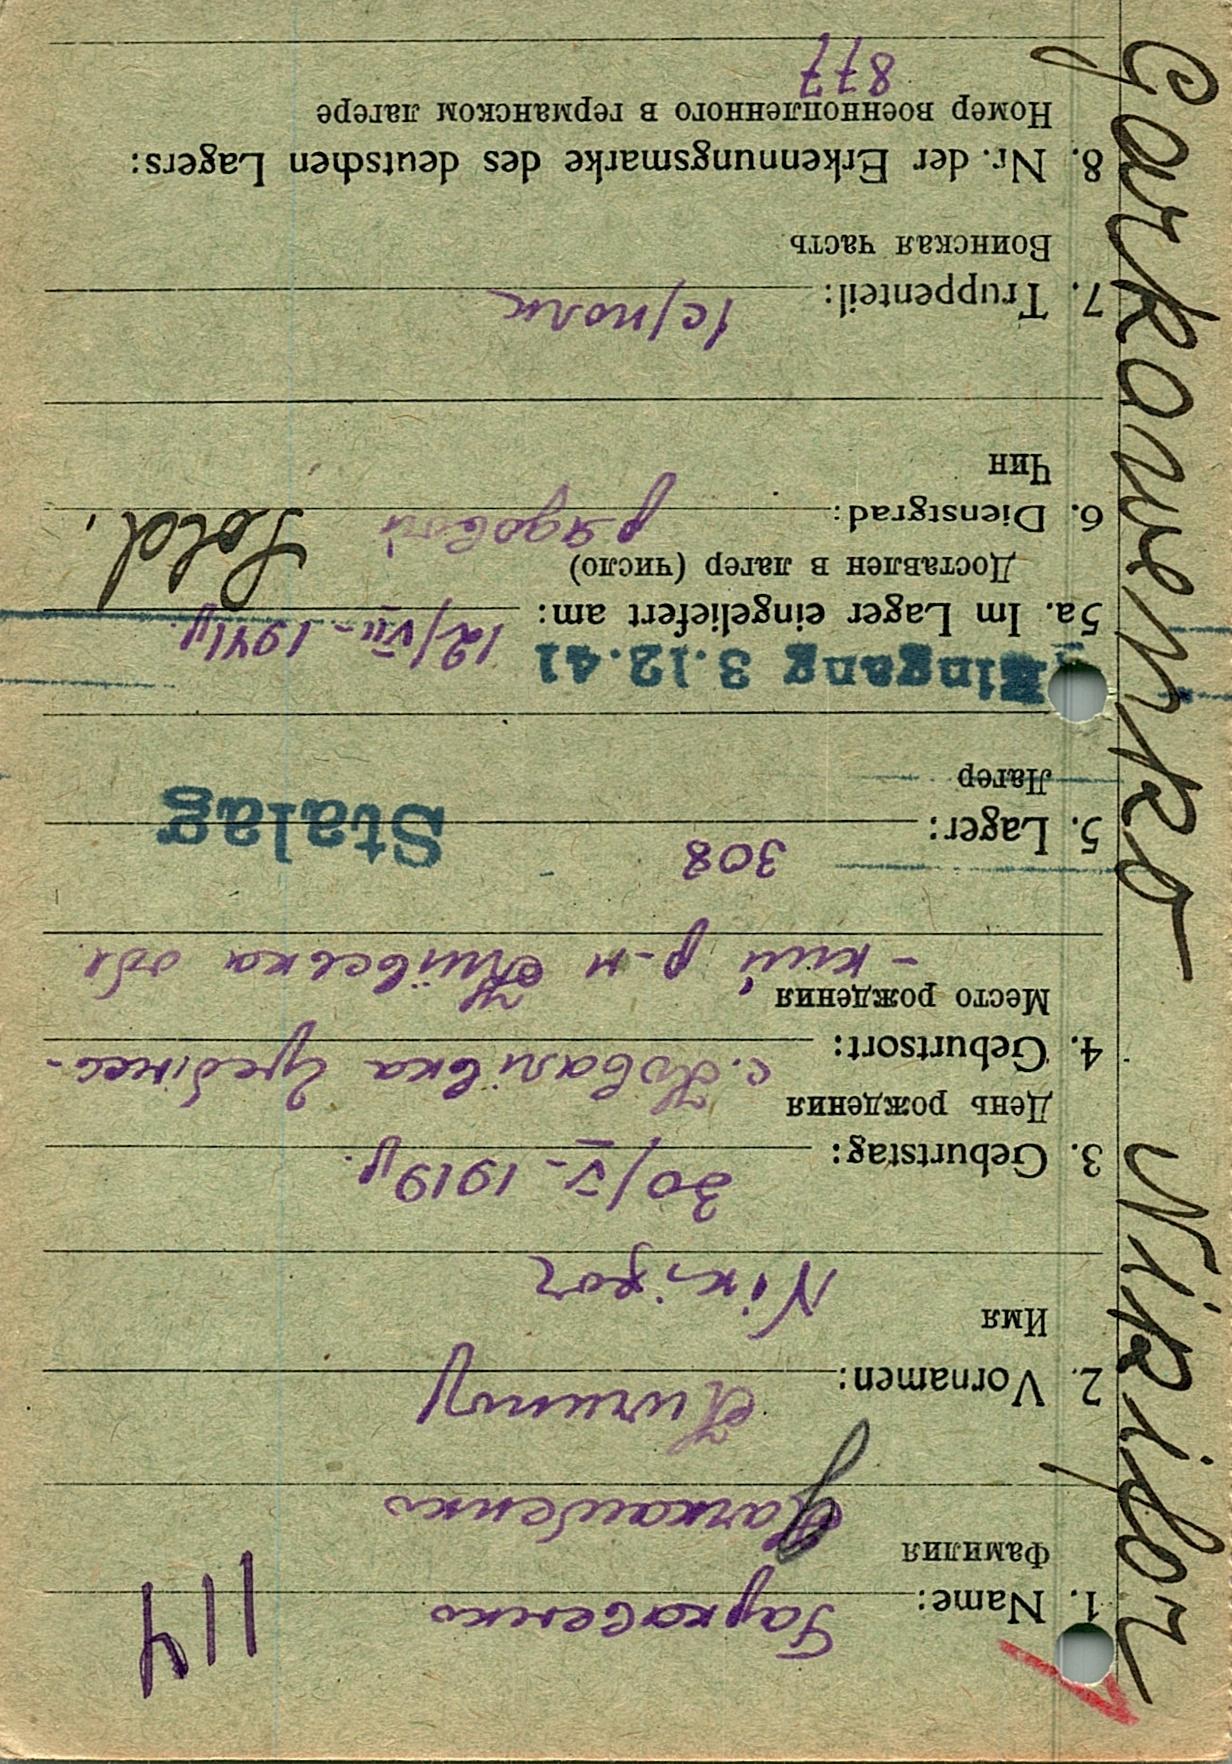 Garkowenko Nikifor
114
1. Name: Гарковенко
Фамилия
Garkawenko
2. Vornamen: Никипор
Имя
Nikifor
3. Geburtstag: 30/V-1919р.
День рождения
4. Geburtsort: с. Ковалівка Гребінкс-
Место рождения
-кий р-н Київська обл.
5. Lager: 308 Stalag
Лагер
Eingang 3.12.41
5a. Im Lager eingeliefert am: 12/VII-1941р.
Доставлен в лагер (число)
6. Dienstgrad: рядовой Sold.
Чин
7. Truppenteil: 1с/полк
Воинская часть
8. Nr. der Erkennungsmarke des deutschen Lagers:
Номер военнопленного в германском лагере
877